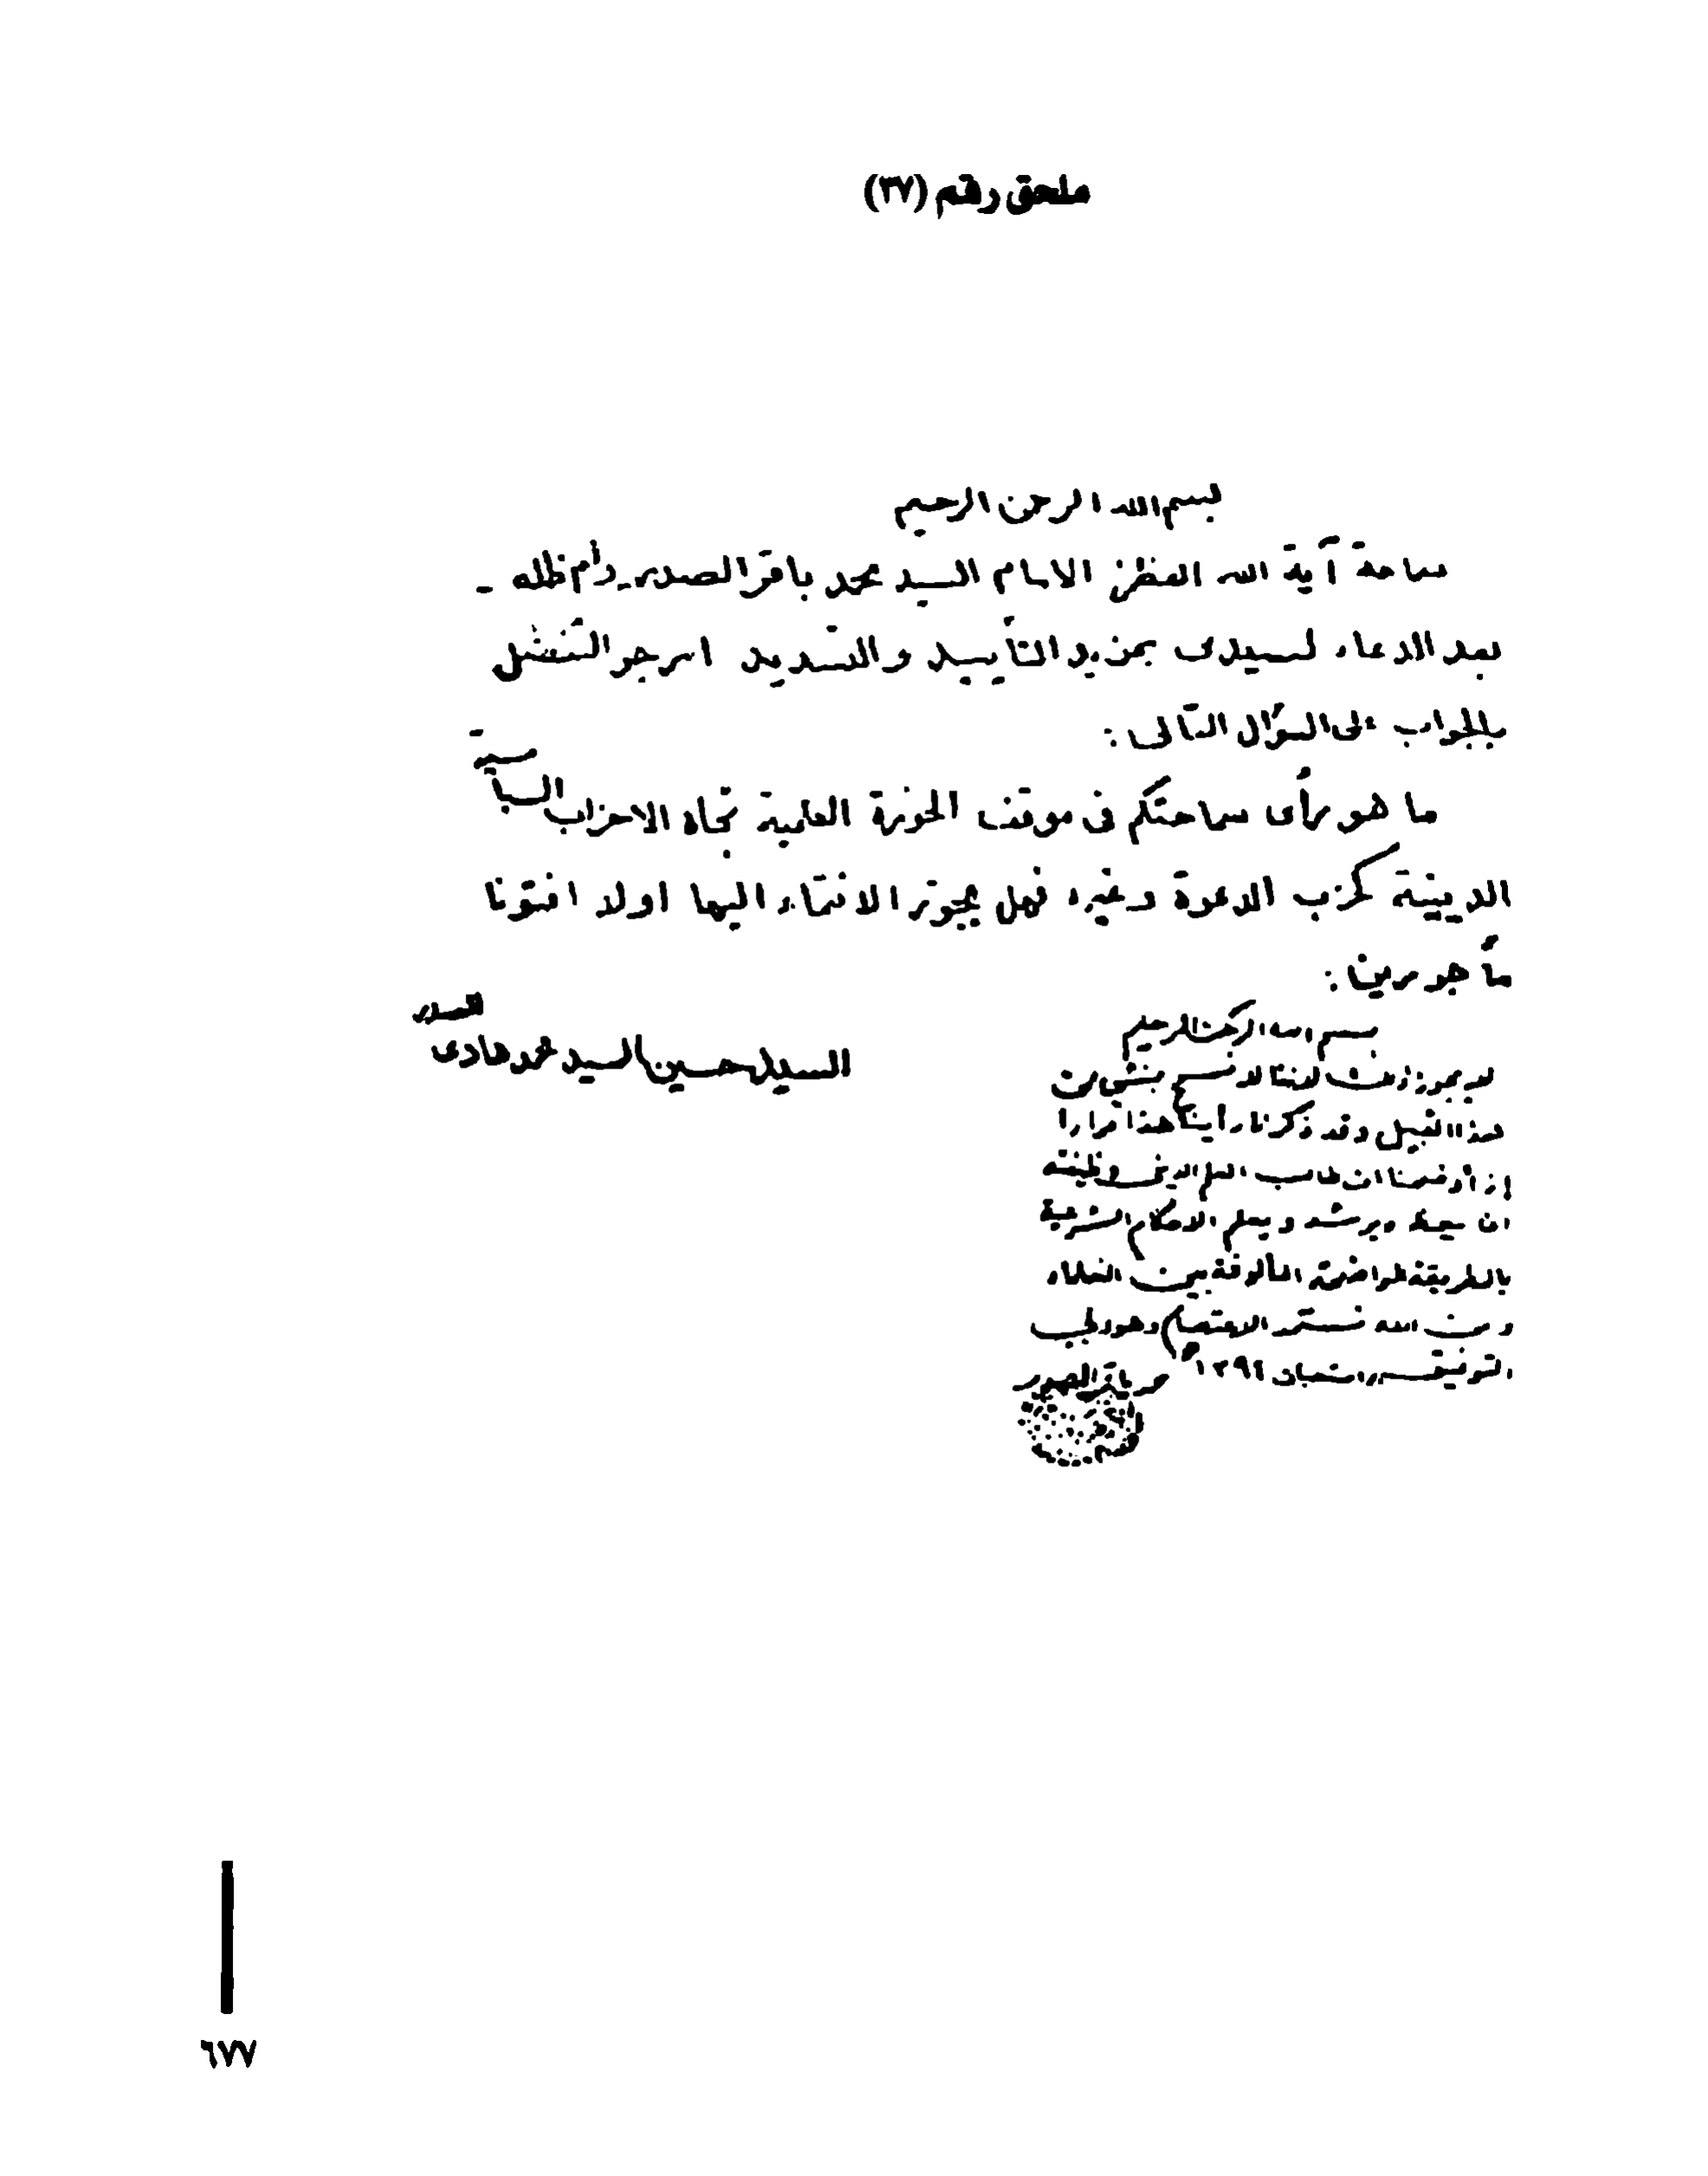 ملحق رقم (٣٧)
بسم الله الرحمن الرحيم
سماحة آية الله العظمى الامام السيد محمد باقر الصدر ـ دام ظله ـ
بعد الدعاء لسيدي بمزيد التأييد والتسديد ارجو التفضل
بالجواب على السؤال التالي :
ما هو رأي سماحتكم في موقف الحوزة العلمية تجاه الاحزاب السياسية
الدينية كحزب الدعوة وغيره فهل يجوز الانتماء اليها اولا افتونا
مأجورين :
السيد حسين السيد محمد هادي الصدر
بسم الله الرحمن الرحيم
لا يجوز ذلك لاننا لا نسمح بشيء من
هذا القبيل وقد ذكرنا رأينا هذا مرارا
إذ أوضحنا ان طالب العلم الديني وظيفته
ان يعظ ويرشد ويعلم الاحكام الشرعية
بالطريقة الواضحة المألوفة بين العلماء
ومن الله نستمد الاعتصام وهو ولي
التوفيق شعبان ١٣٩٤ هـ
محمد باقر الصدر
٦٧٧